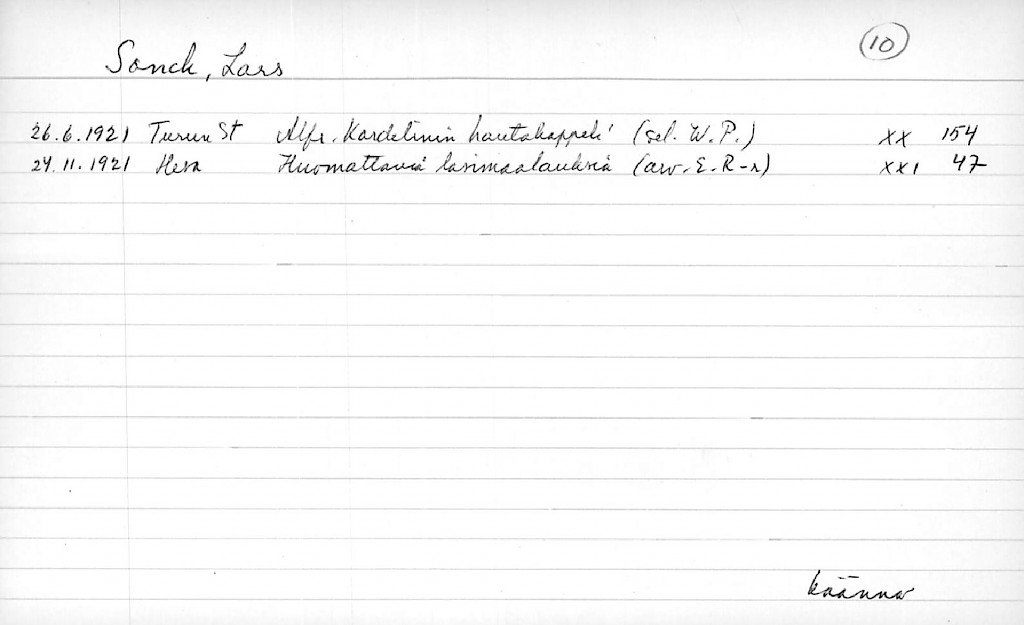 10
Sonck, Lars
26.6.1921 Turun St Alfr. Kordelinin hautakappeli (sel. W.P.) XX 154
24.11.1921 HeSa Huomattavia lasimaalauksia (arv. E. R-r) XXI 47
käännä